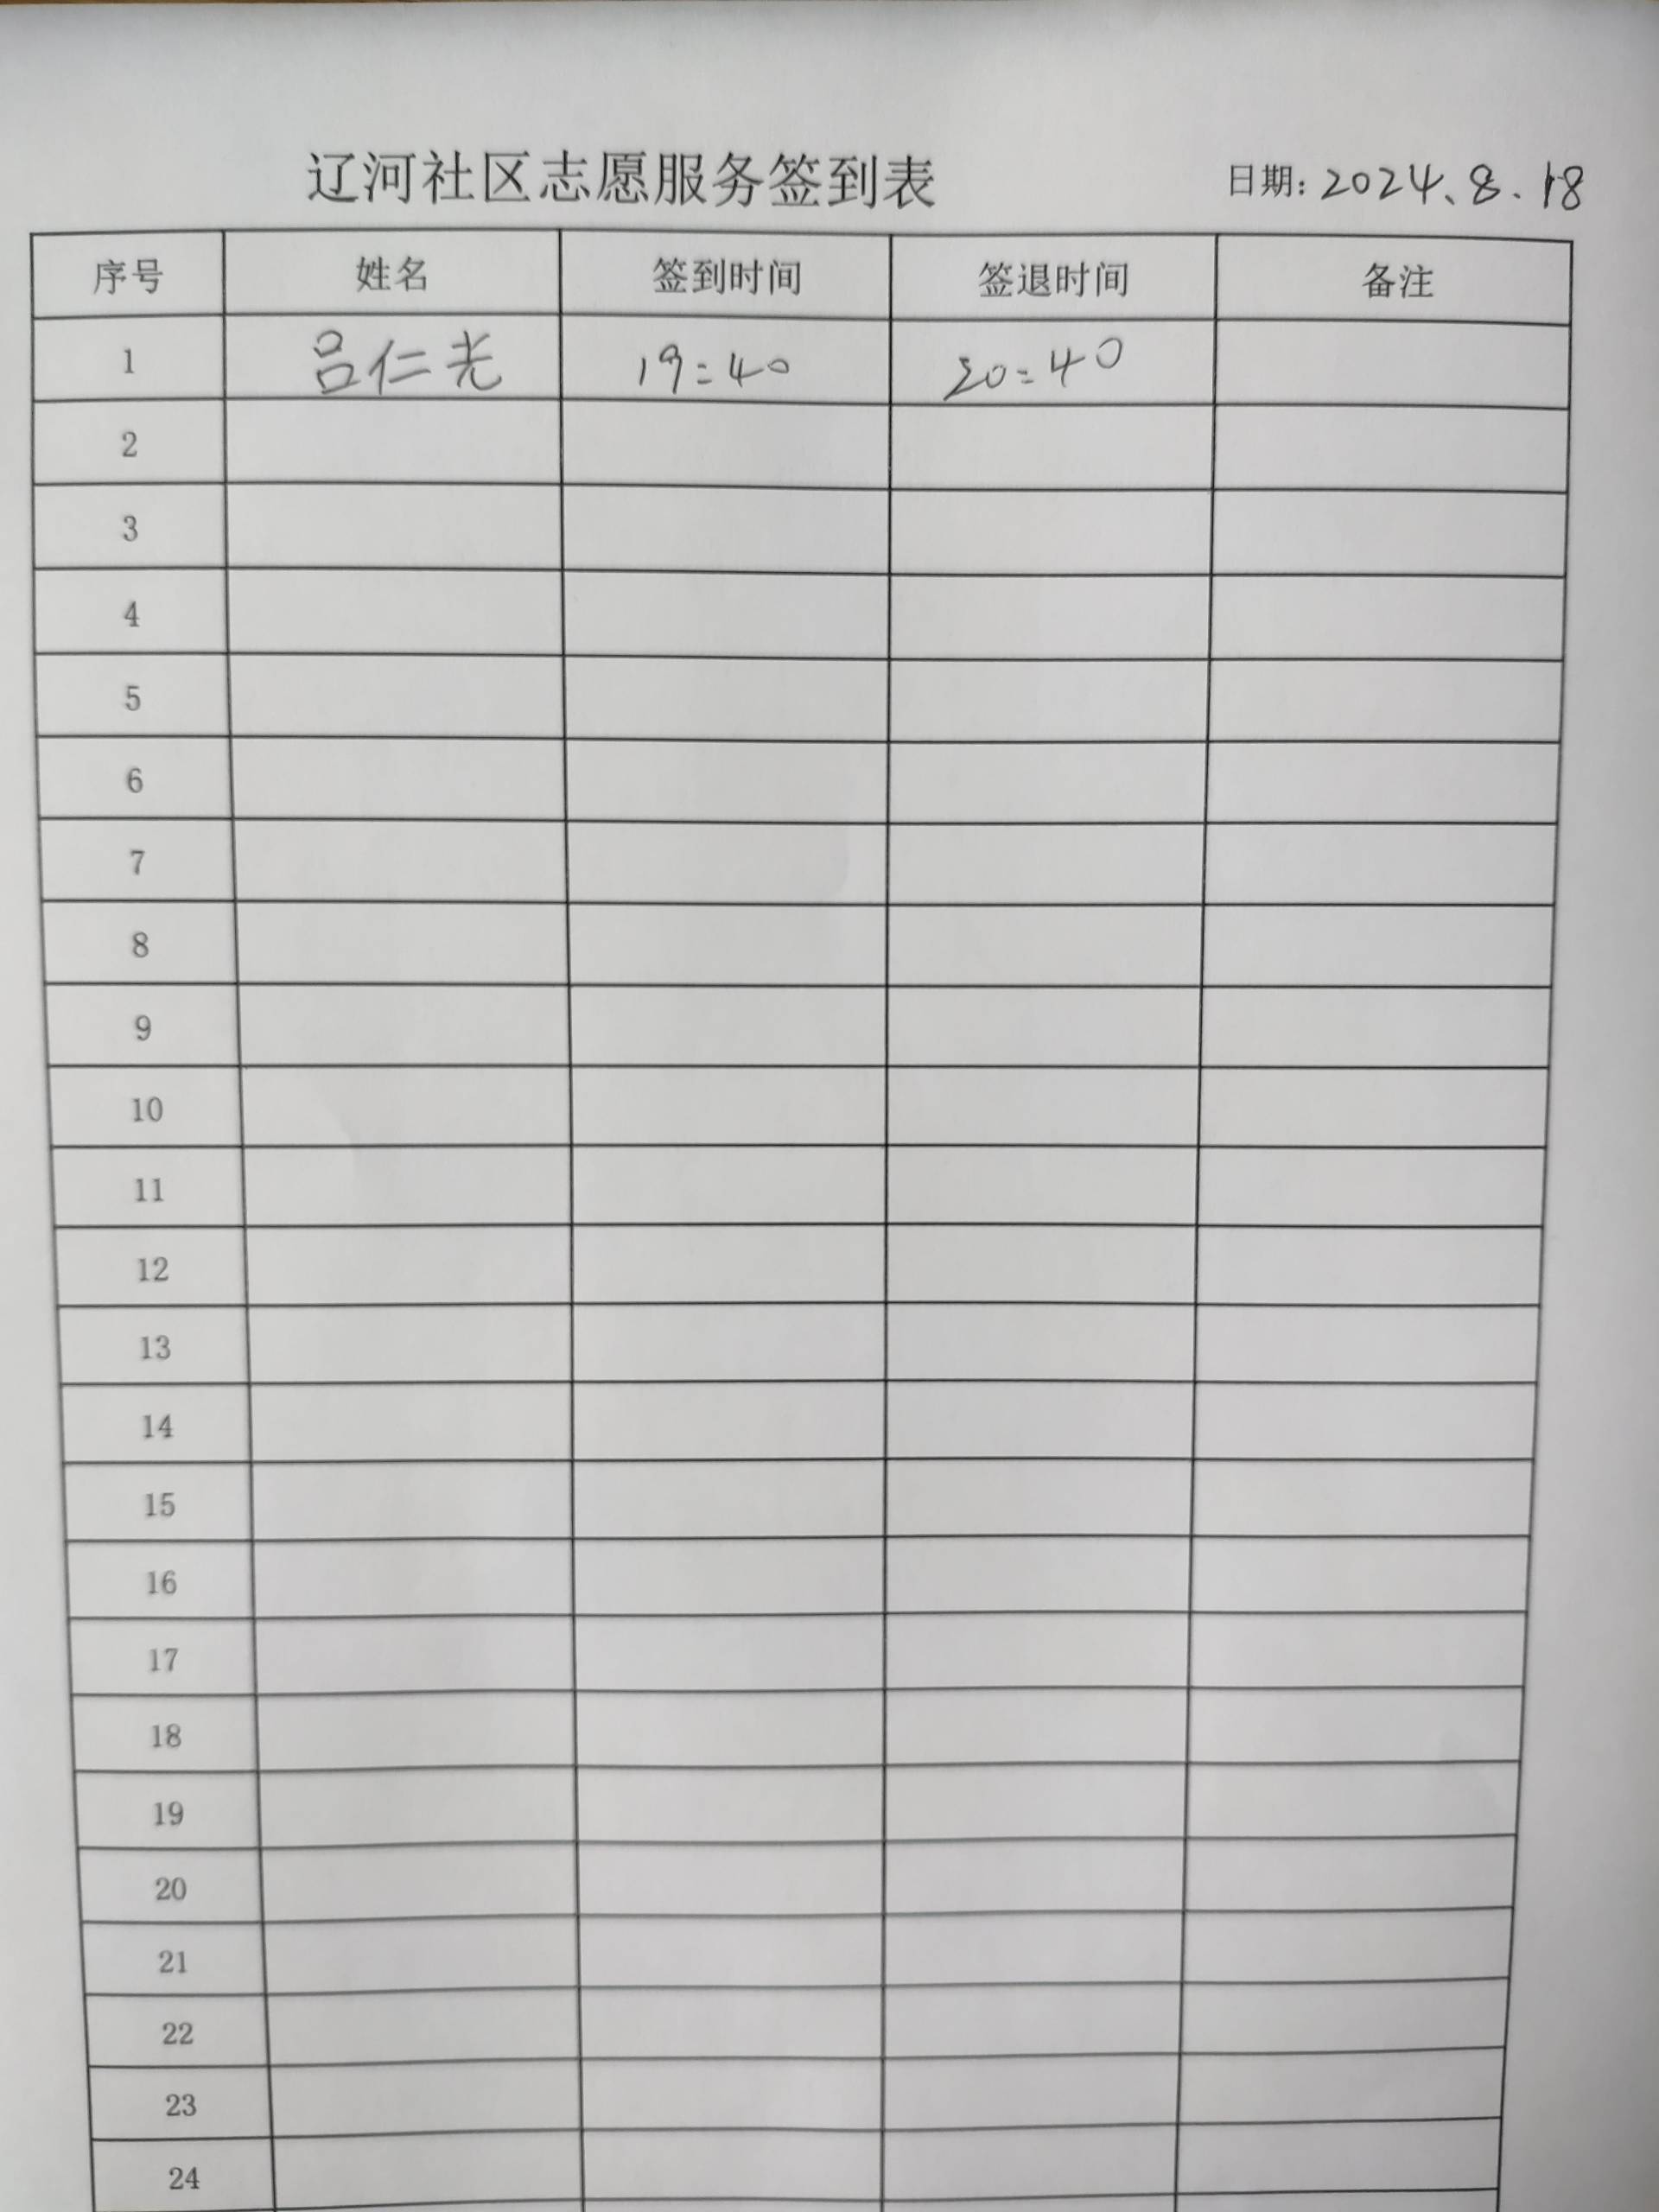 辽河社区志愿服务签到表 日期：2024、8.18
序号 姓名 签到时间 签退时间 备注
1 吕仁光 19:40 20:40
2
3
4
5
6
7
8
9
10
11
12
13
14
15
16
17
18
19
20
21
22
23
24